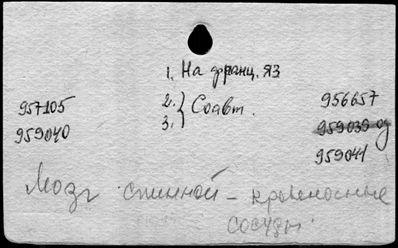 1. На франц. яз
957105
2. } Соавт.
956657
959040
3.
959039 од
959041
Мозг спинной – кровеносные
сосуды.